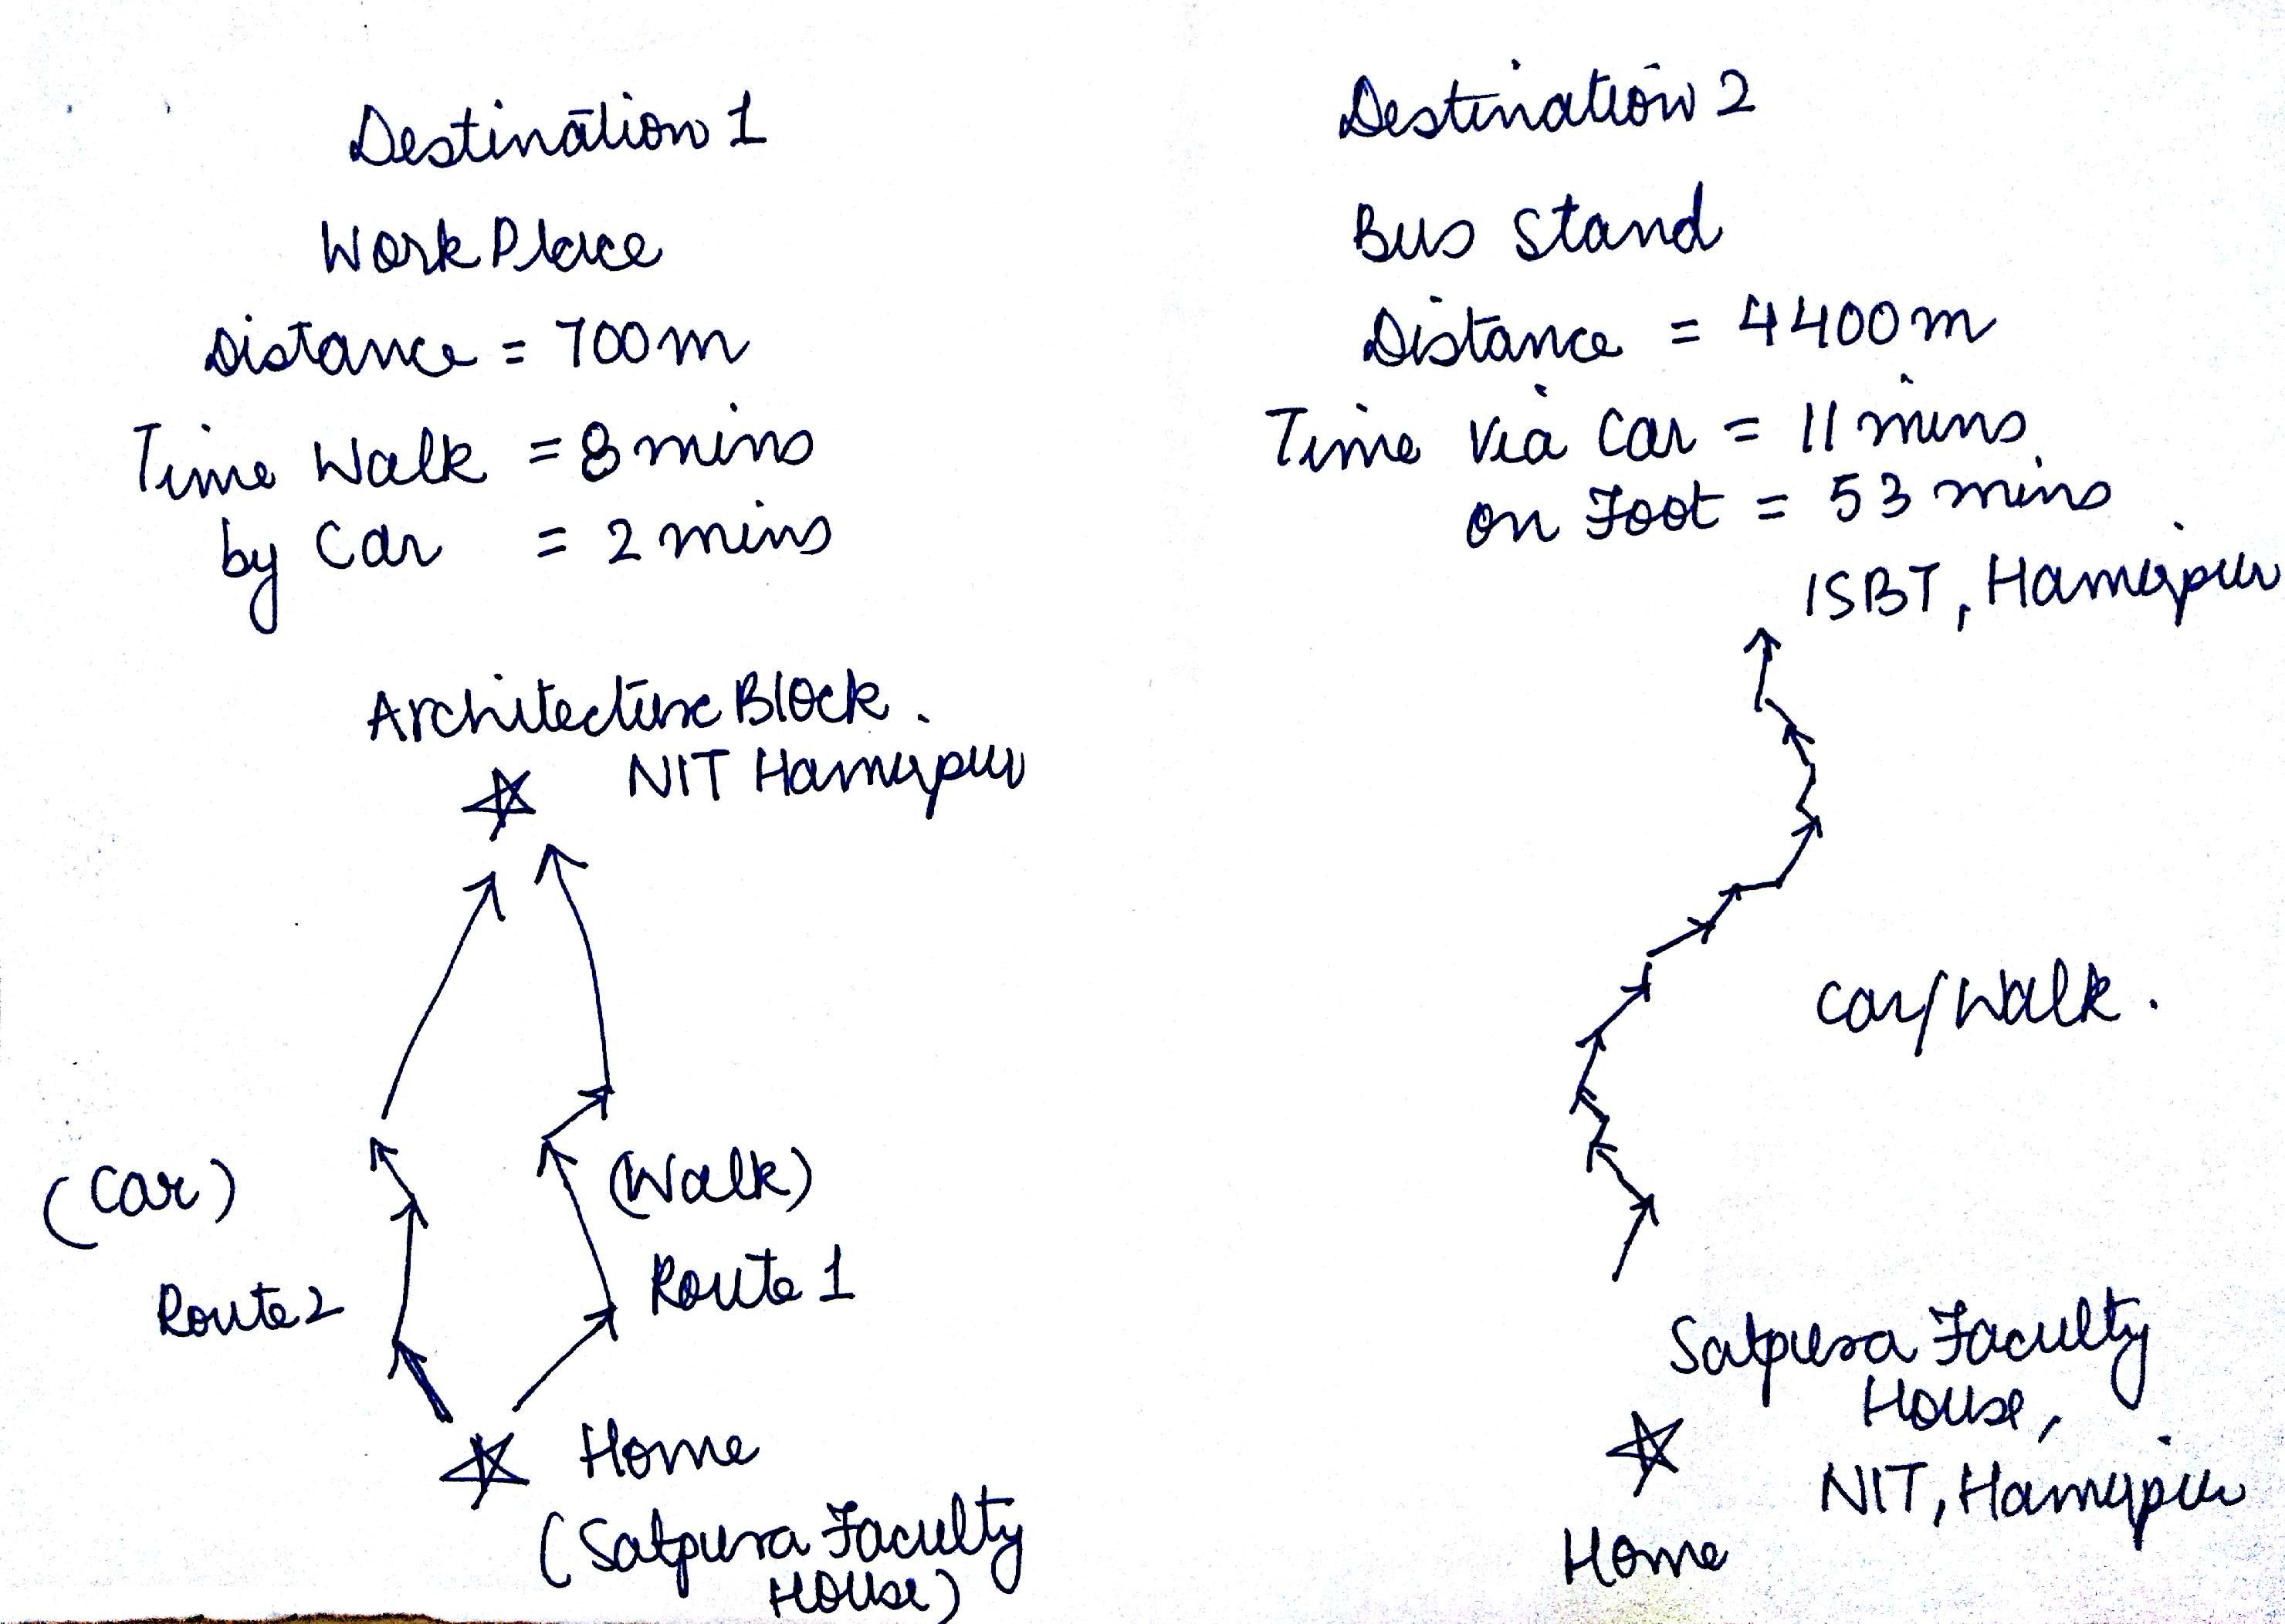 Destination 1
Work Place
Distance = 700m
Time Walk = 8 mins
by Car = 2 mins
Architecture Block.
NIT Hamirpur
(Car)
(Walk)
Route 2
Route 1
Home
(Satpura Faculty
House)
Destination 2
Bus Stand
Distance = 4400m
Time Via Car = 11 mins
on Foot = 53 mins
ISBT, Hamirpur
Car/Walk.
Satpura Faculty
House,
NIT, Hamirpur
Home